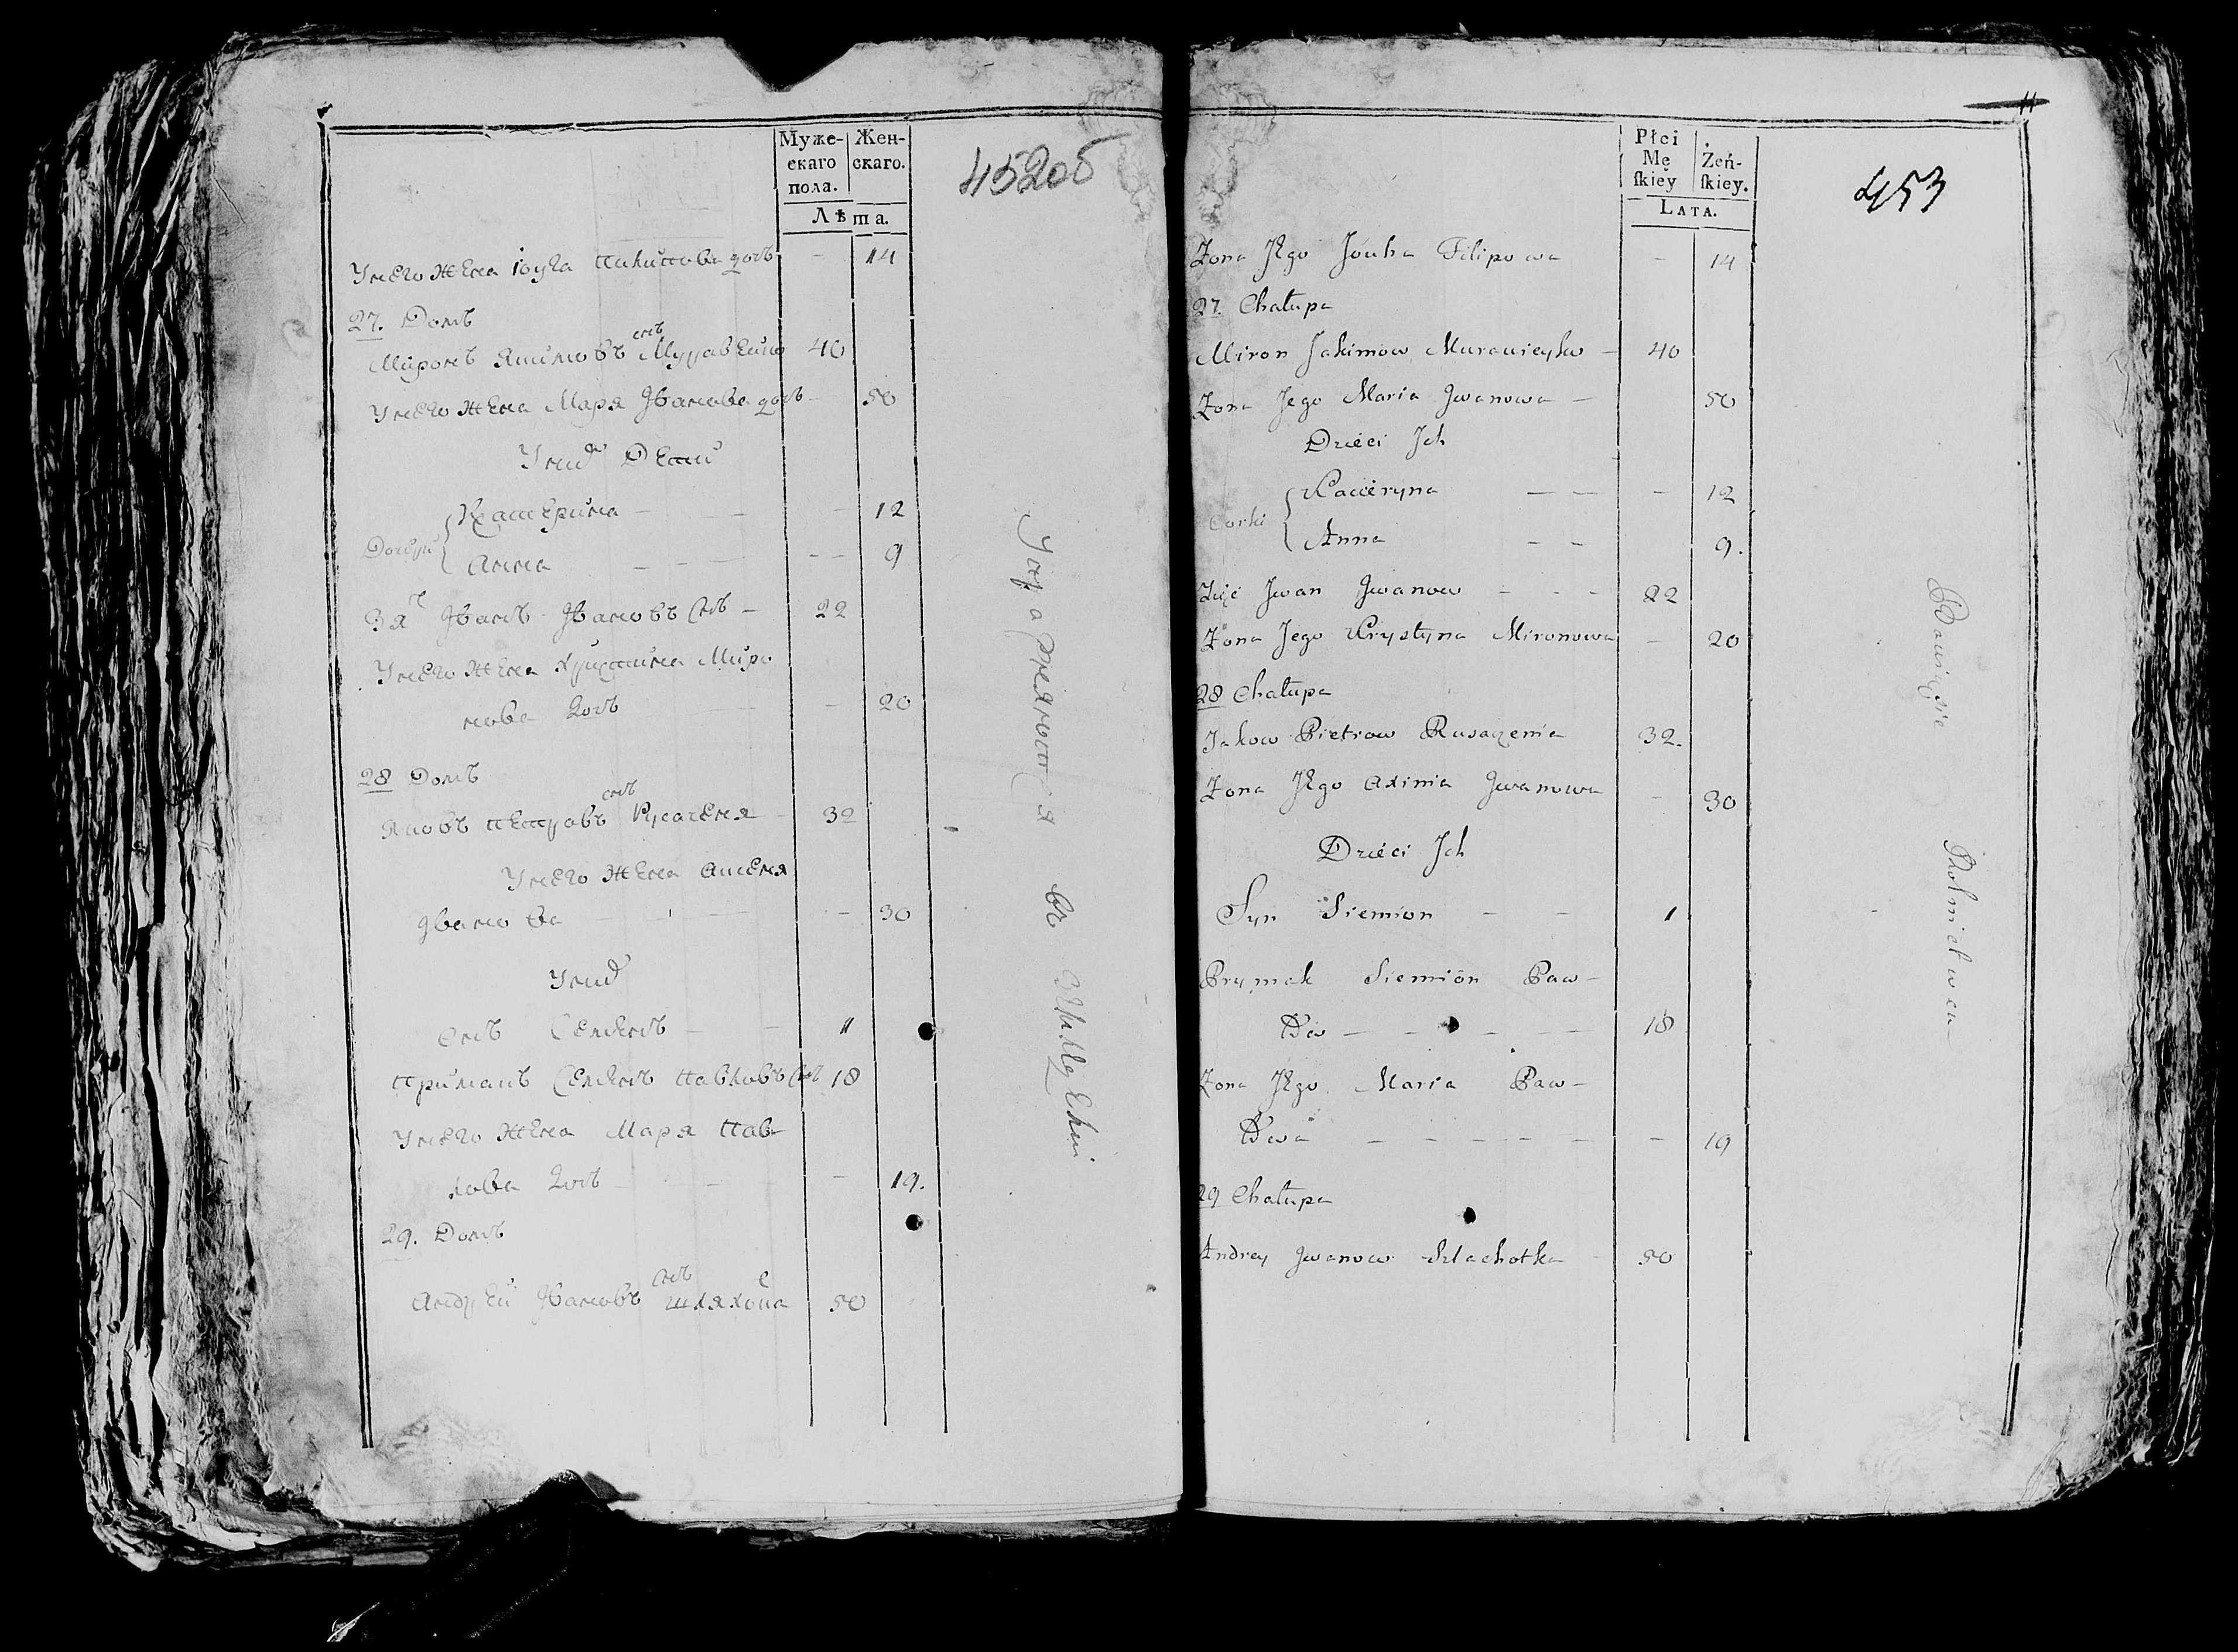 Муже-
скаго
пола.
Жен-
скаго.
Лѣта.
452об
Унего жена Іоуга Пилипова дочь - 14
27. Домъ
Миронъ Якимовъ снъ Муравейко 40
Унего жена Маря Иванова дочь - 50
Унихъ Дети
Дочери
Катерина - 12
Анна - 9
Зять Иванъ Ивановъ снъ - 22
Унего жена Христина Миро
нова дочь - 20
28 Домъ
Яковъ Петровъ снъ Русаченя - 32
Унего жена Аксеня
Иванова - 30
Унихъ
Снъ Семіонъ - 1
Примакъ Семіонъ Павловъ снъ 18
Унего жена Маря Пав-
лова дочь - 19.
29. Домъ
Андрей Ивановъ снъ Шляхотка 50
Упражняются въ
Płci
Mę
ſkiey
Żeń-
ſkiey.
Lata.
11
453
Żona Jego Jouha Filipowa - 14
27 Chałupa
Miron Jakimow Murawieyko - 40
Żona Jego Maria Jwanowa - 50
Dzieci Jch
Corki
Kacieryna - 12
Anna - 9.
Zięć Jwan Jwanow - 22
Żona Jego Krystyna Mironowa - 20
28 Chałupa
Jakow Pietrow Rusaczenia 32.
Żona Jego Axinia Jwanowa - 30
Dzieci Jch
Syn Siemion - 1
Prymak Siemion Paw-
łow - 18
Żona Jego Maria Paw-
łowa - 19
29 Chałupa
Andrey Jwanow Szlachotka - 50
Bawią się Rolnictwem